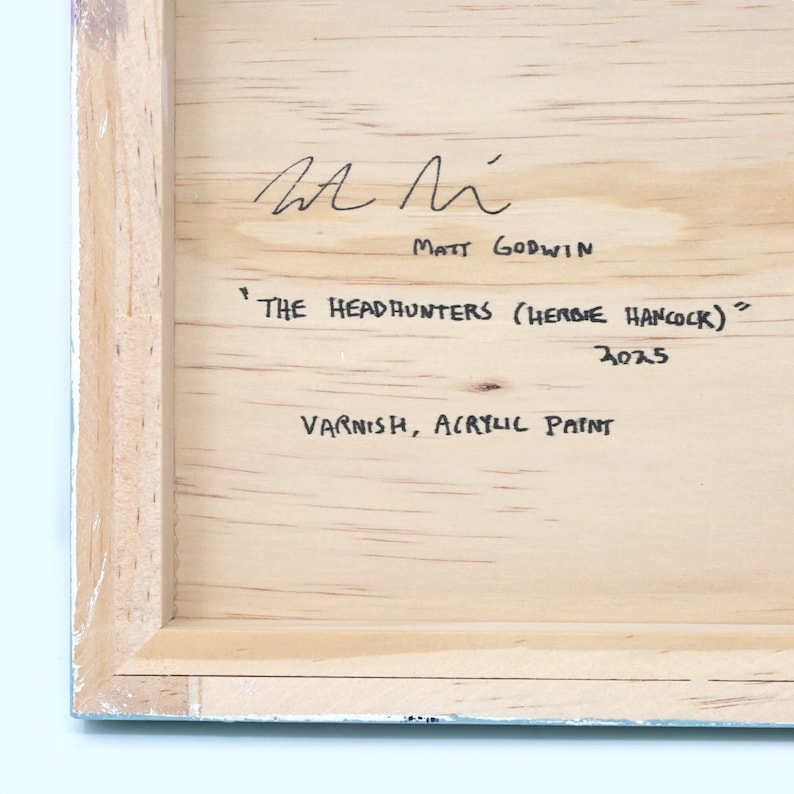 Matt Godwin
"The Headhunters (Herbie Hancock)"
2025
Varnish, Acrylic Paint